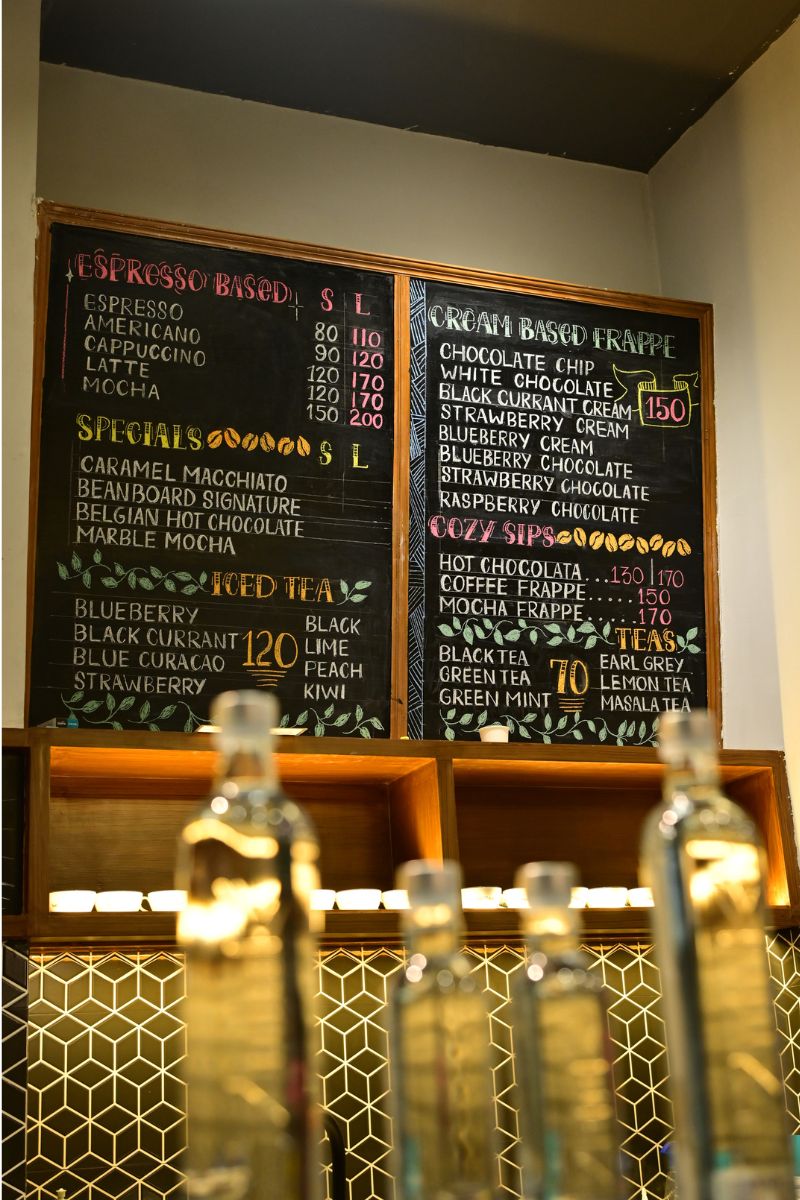 ESPRESSO BASED S L
ESPRESSO 80 110
AMERICANO 90 120
CAPPUCCINO 120 170
LATTE 120 170
MOCHA 150 200
SPECIALS S L
CARAMEL MACCHIATO
BEANBOARD SIGNATURE
BELGIAN HOT CHOCOLATE
MARBLE MOCHA
ICED TEA
BLUEBERRY
BLACK CURRANT
BLUE CURACAO
STRAWBERRY
120
BLACK
LIME
PEACH
KIWI
CREAM BASED FRAPPE
CHOCOLATE CHIP
WHITE CHOCOLATE
BLACK CURRANT CREAM
STRAWBERRY CREAM
BLUEBERRY CREAM
BLUEBERRY CHOCOLATE
STRAWBERRY CHOCOLATE
RASPBERRY CHOCOLATE
150
COZY SIPS
HOT CHOCOLATA...130|170
COFFEE FRAPPE.....150
MOCHA FRAPPE.....170
TEAS
BLACK TEA
GREEN TEA
GREEN MINT
70
EARL GREY
LEMON TEA
MASALA TEA